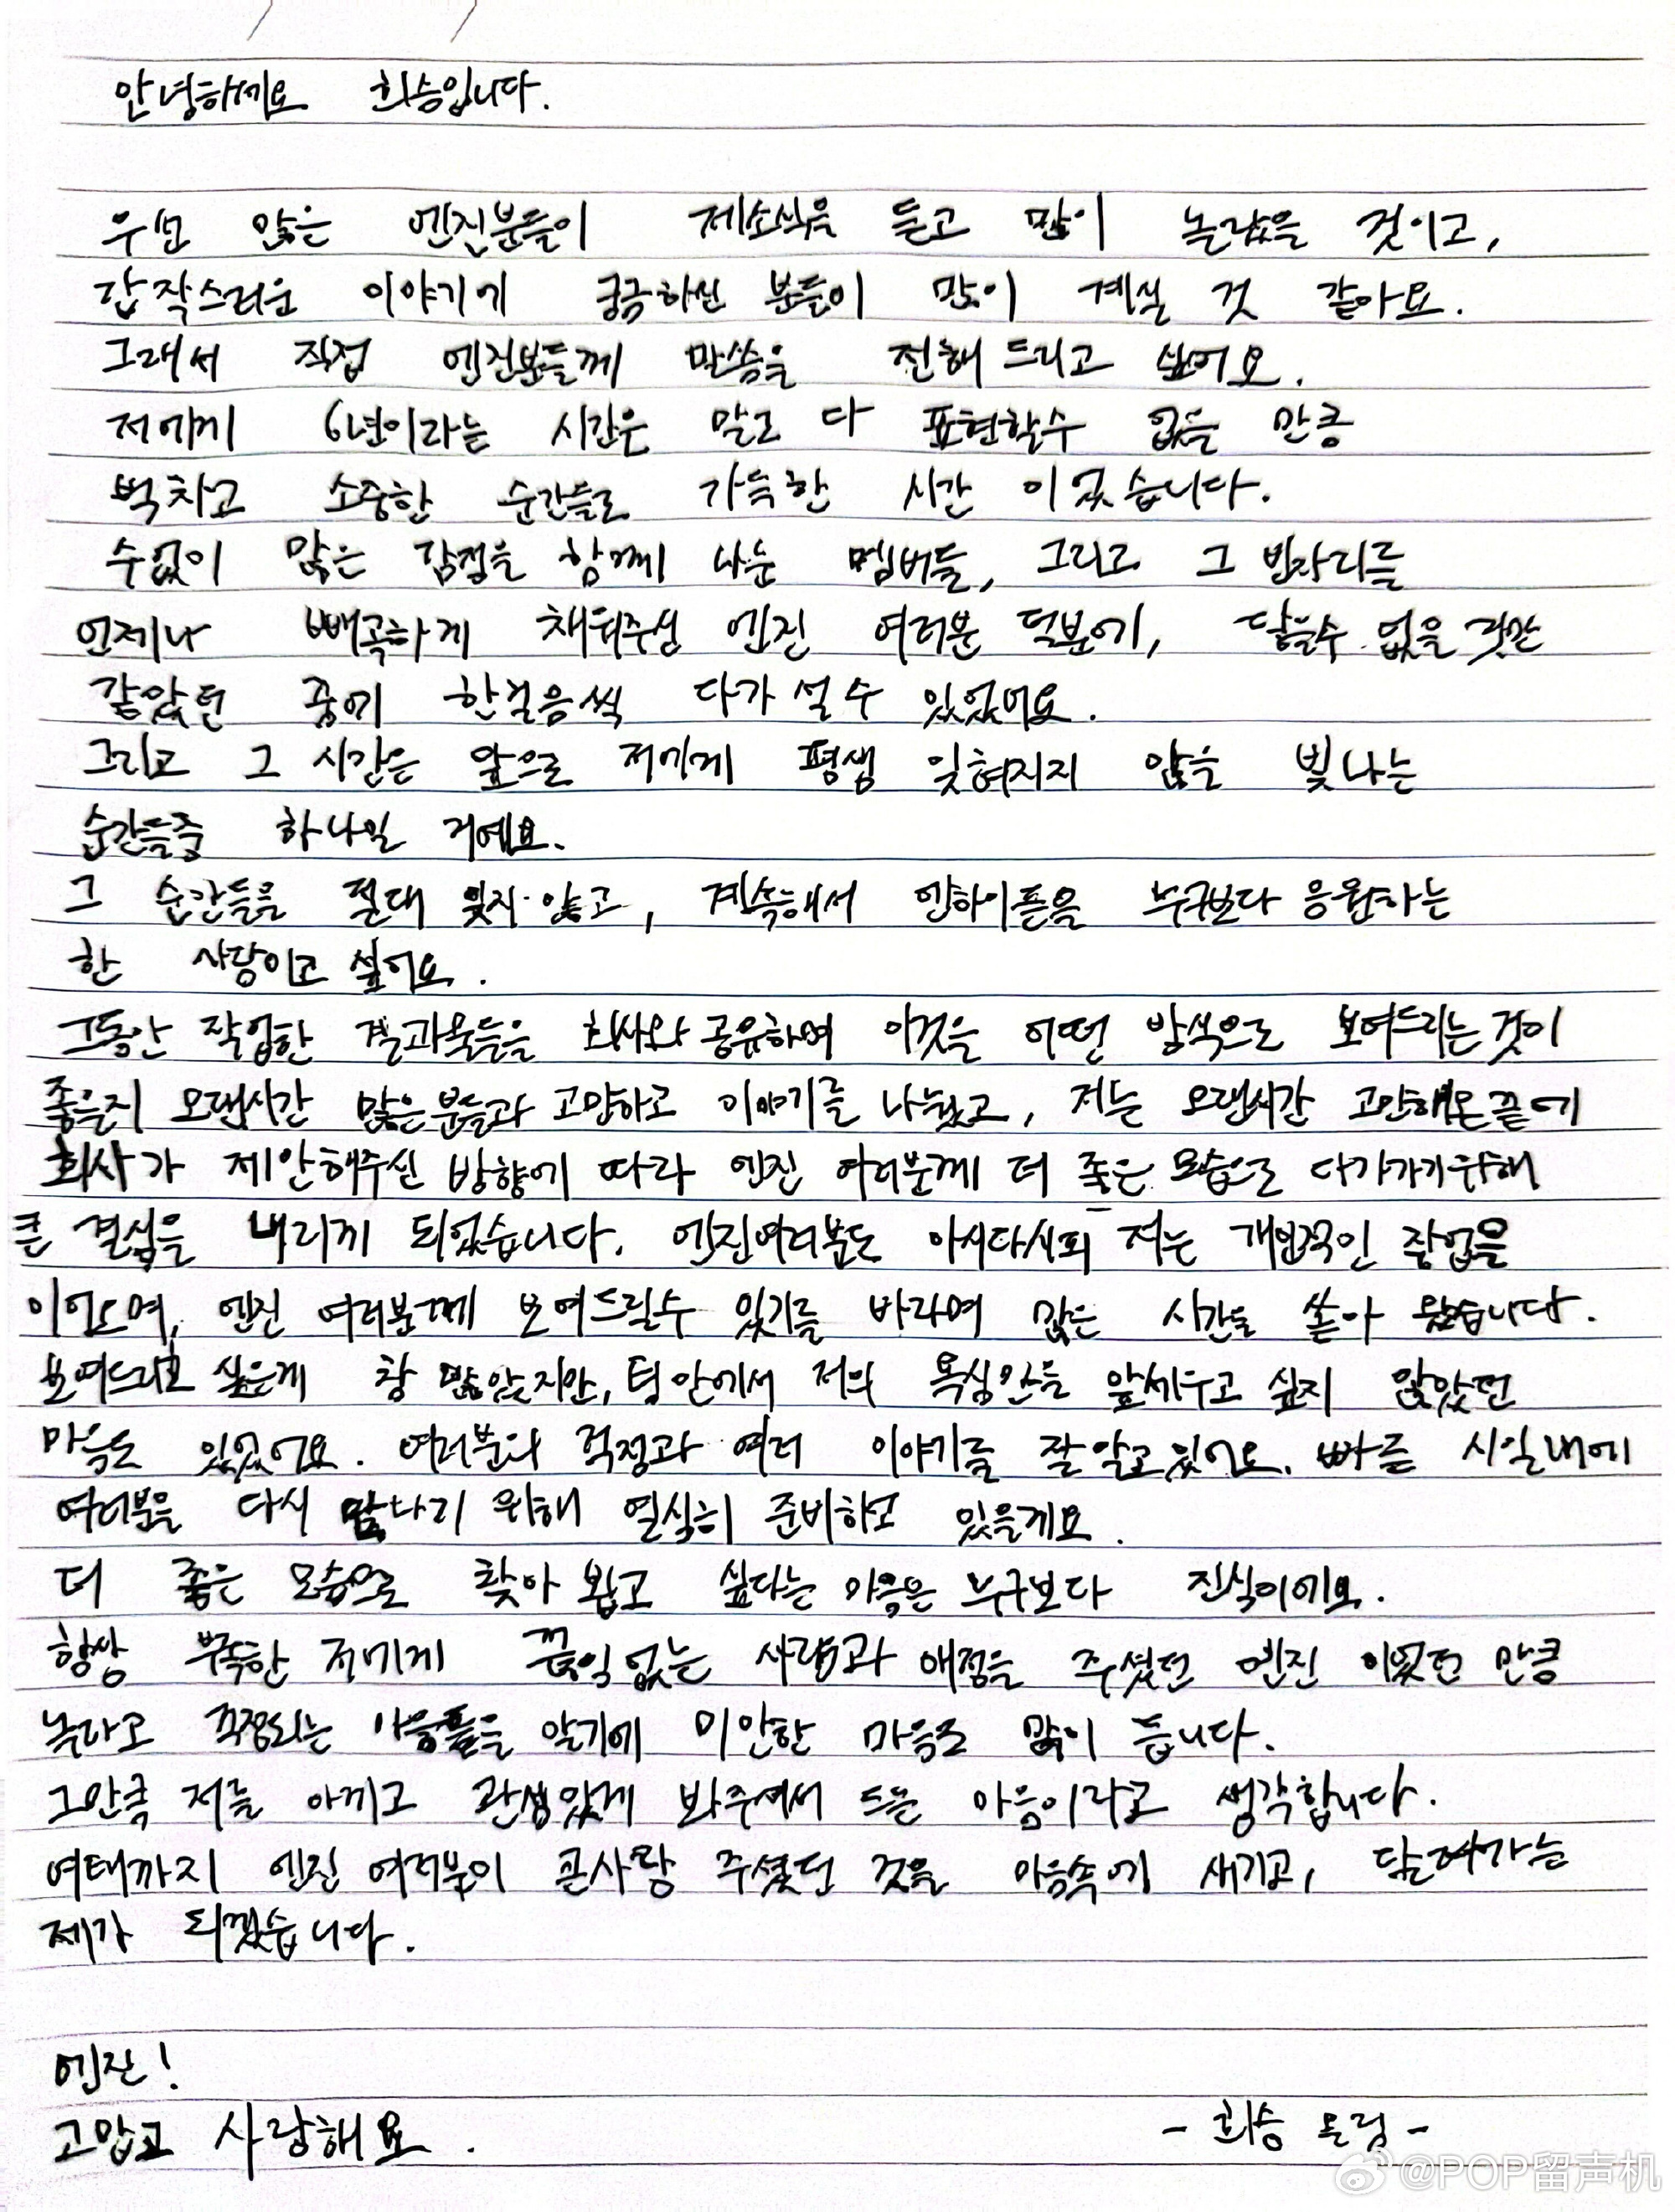 안녕하세요 희승입니다.
우선 많은 엔진분들이 제소식을 듣고 많이 놀랐을 것이고,
갑작스러운 이야기에 궁금하신 분들이 많이 계실 것 같아요.
그래서 직접 엔진분들께 말씀을 전해 드리고 싶어요.
저에게 6년이라는 시간은 말로 다 표현할수 없을 만큼
벅차고 소중한 순간들로 가득한 시간 이었습니다.
수없이 많은 감정을 함께 나눈 멤버들, 그리고 그 빈자리를
언제나 빼곡하게 채워주신 엔진 여러분 덕분에, 닿을수 없을 것만
같았던 꿈에 한걸음씩 다가 설 수 있었어요.
그리고 그 시간은 앞으로 저에게 평생 잊혀지지 않을 빛나는
순간들중 하나일 거에요.
그 순간들을 절대 잊지 않고, 계속해서 엔하이픈을 누구보다 응원하는
한 사람이고 싶어요.
그동안 작업한 결과물들을 회사와 공유하며 이것을 어떤 방식으로 보여드리는것이
좋을지 오랜시간 많은분들과 고민하고 이야기를 나눴고, 저는 오랜시간 고민해온끝에
회사가 제안해주신 방향에 따라 엔진 여러분께 더 좋은 모습으로 다가가기위해
큰 결심을 내리게 되었습니다. 엔진여러분도 아시다시피 저는 개인적인 작업을
이어오며, 엔진 여러분께 보여드릴수 있기를 바라며 많은 시간을 쏟아 왔습니다.
보여드리고 싶은게 참 많았지만, 팀 안에서 저의 욕심만을 앞세우고 싶지 않았던
마음도 있었어요. 여러분의 걱정과 여러 이야기를 잘 알고있어요. 빠른 시일내에
여러분을 다시 만나기 위해 열심히 준비하고 있을게요.
더 좋은 모습으로 찾아 뵙고 싶다는 마음은 누구보다 진심이에요.
항상 부족한 저에게 끊임없는 사랑과 애정을 주셨던 엔진 이었던 만큼
놀라고 걱정되는 마음들을 알기에 미안한 마음도 많이 듭니다.
그만큼 저를 아끼고 관심있게 봐주셔서 드는 마음이라고 생각합니다.
여태까지 엔진 여러분이 큰사랑 주셨던 것을 마음속에 새기고, 달려가는
제가 되겠습니다.
엔진!
고맙고 사랑해요.
- 희승 올림 -
@POP留声机